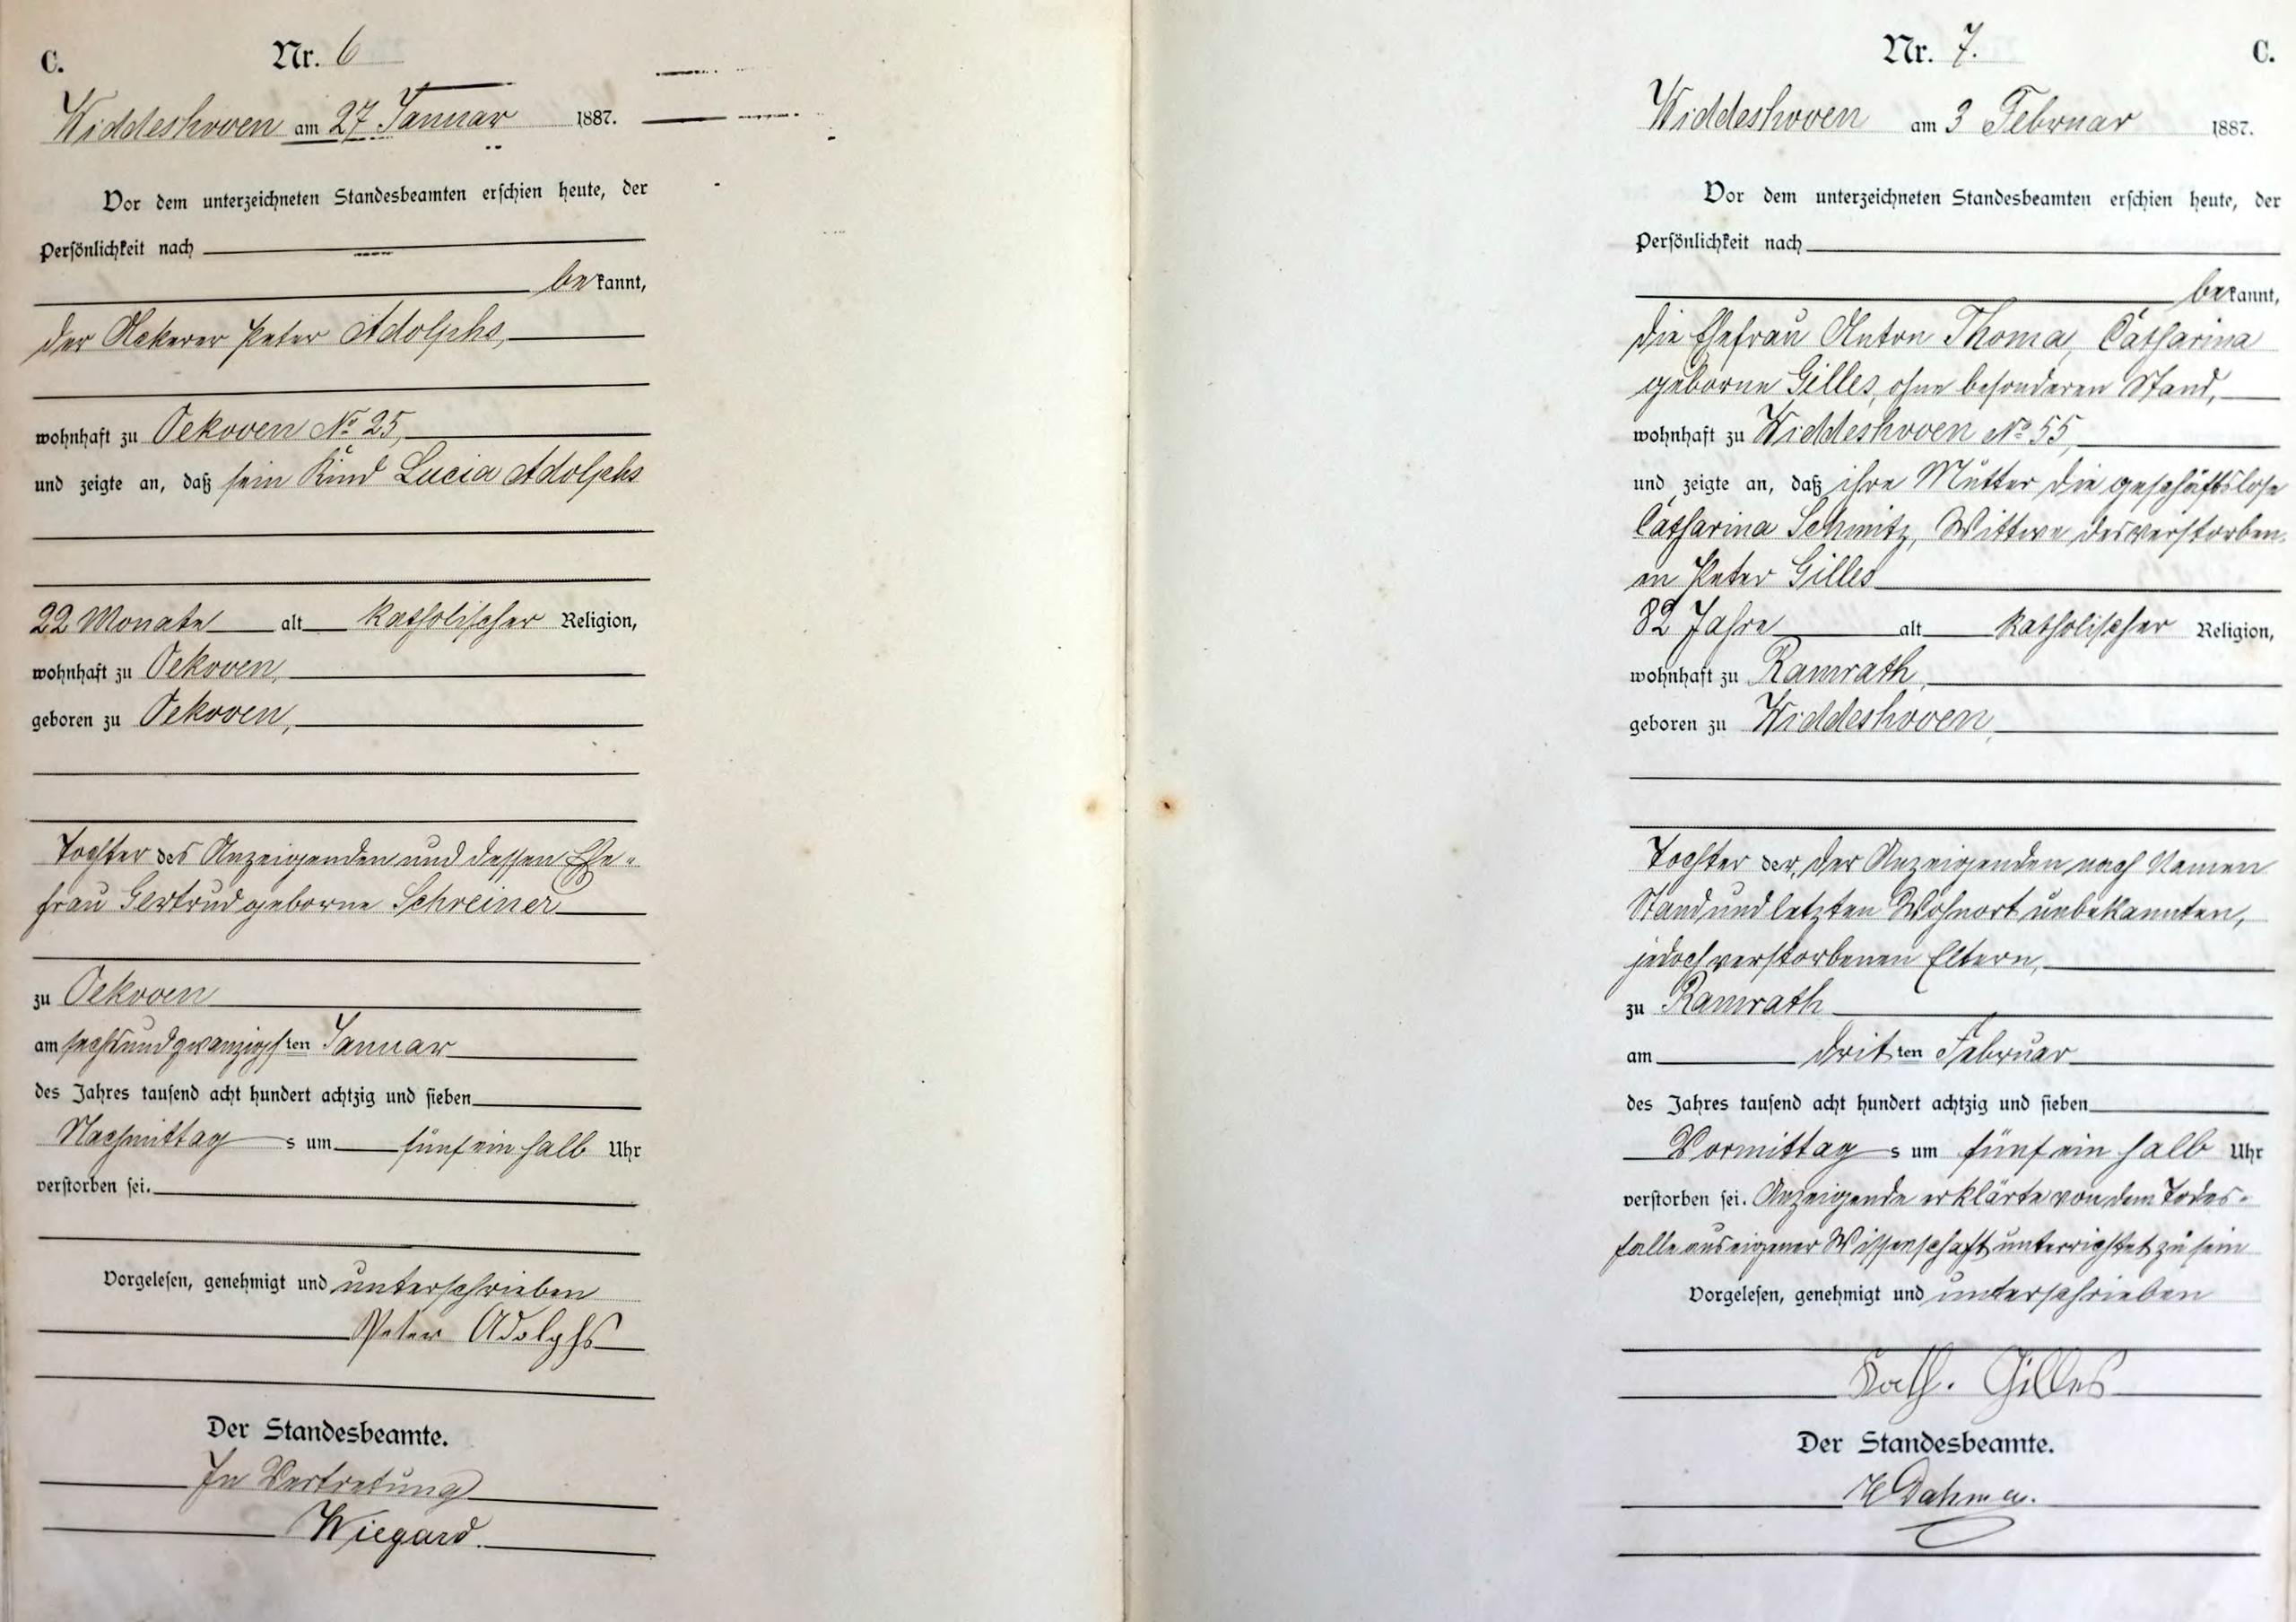 C.
Nr. 6
Widdeshoven am 27 Januar 1887.
Vor dem unterzeichneten Standesbeamten erschien heute, der
Persönlichkeit nach
bekannt,
der Ackerer Peter Adolphs,
wohnhaft zu Oekoven No 25,
und zeigte an, daß sein Kind Lucia Adolphs
22 Monate alt katholischer Religion,
wohnhaft zu Oekoven,
geboren zu Oekoven,
Tochter des Anzeigenden und dessen Ehe-
frau Gertrud geborne Schreiner
zu Oekoven
am sechsundzwanzigsten Januar
des Jahres tausend acht hundert achtzig und sieben
Nachmittags um fünf ein halb Uhr
verstorben sei.
Vorgelesen, genehmigt und unterschrieben
Peter Adolphs
Der Standesbeamte.
In Vertretung
Wiegard.
Nr. 7.
C.
Widdeshoven am 3 Februar 1887.
Vor dem unterzeichneten Standesbeamten erschien heute, der
Persönlichkeit nach
bekannt,
die Ehefrau Anton Thoma, Catharina
geborne Gilles, ohne besonderen Stand,
wohnhaft zu Widdeshoven No 55,
und zeigte an, daß ihre Mutter die geschäftslose
Catharina Schmitz, Wittwe des verstorben-
en Peter Gilles
82 Jahre alt katholischer Religion,
wohnhaft zu Ramrath,
geboren zu Widdeshoven,
Tochter der, der Anzeigenden nach Namen
Stand und letzten Wohnort unbekannten,
jedoch verstorbenen Eltern,
zu Ramrath
am dritten Februar
des Jahres tausend acht hundert achtzig und sieben
Vormittags um fünf ein halb Uhr
verstorben sei. Anzeigende erklärte von dem Todes-
falle aus eigener Wissenschaft unterrichtet zu sein
Vorgelesen, genehmigt und unterschrieben
Kath. Gilles
Der Standesbeamte.
H Dahmen.